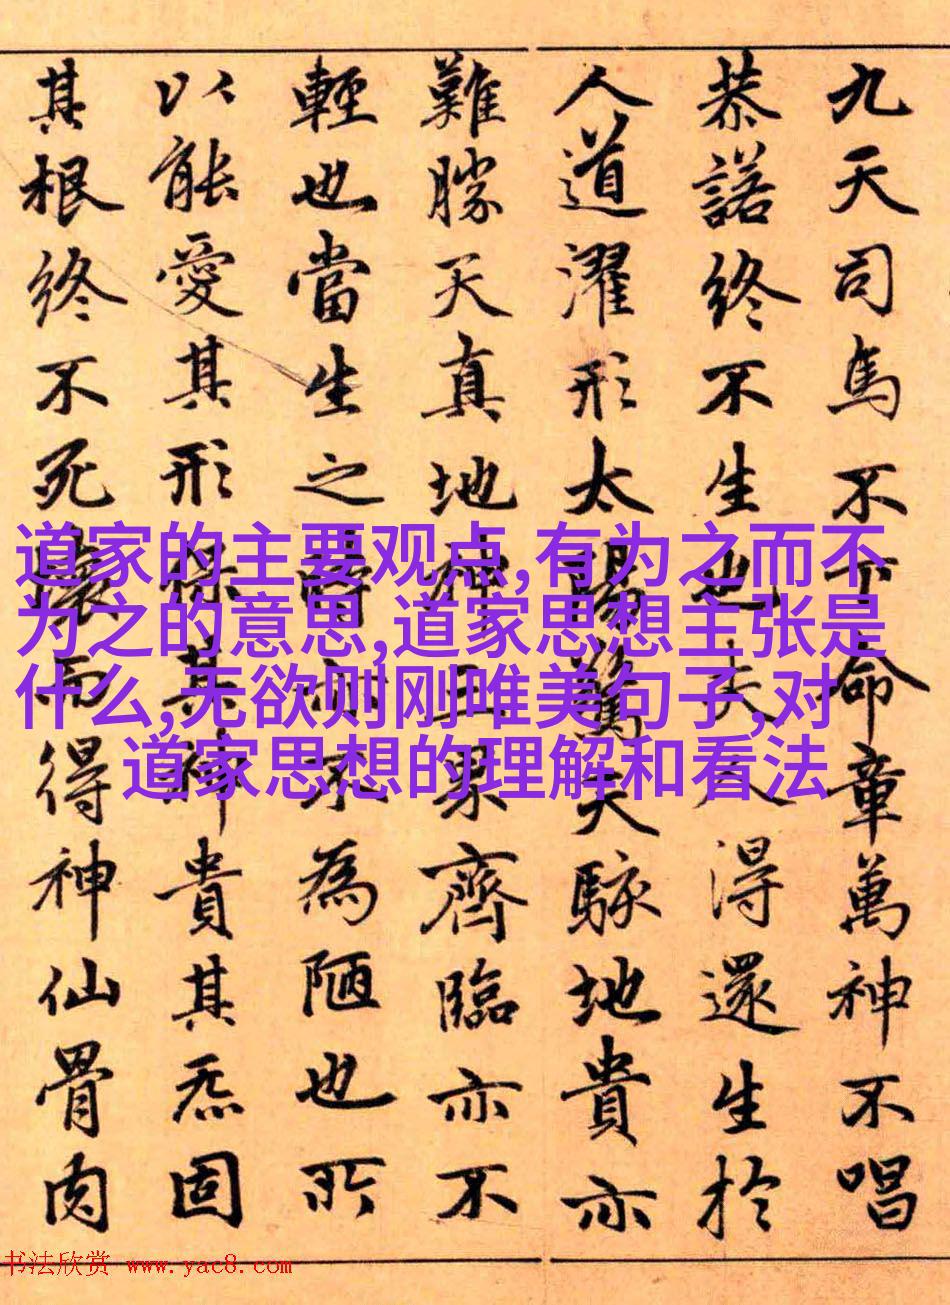 九天司馬不下命章萬神不唱
恭諾終不生也夫人得還生於
人道濯形太陽驚天駭地貴亦
難勝天真地神三界齊臨亦不
輕也當生之時亦不為陋也所
以能愛其形保其神貴其炁固
其根終不死壞而得神仙骨肉
道家的主要观点,有为之而不
为之的意思,道家思想主张是
什么,无欲则刚唯美句子,对
道家思想的理解和看法
书法欣赏 www.yac8.com